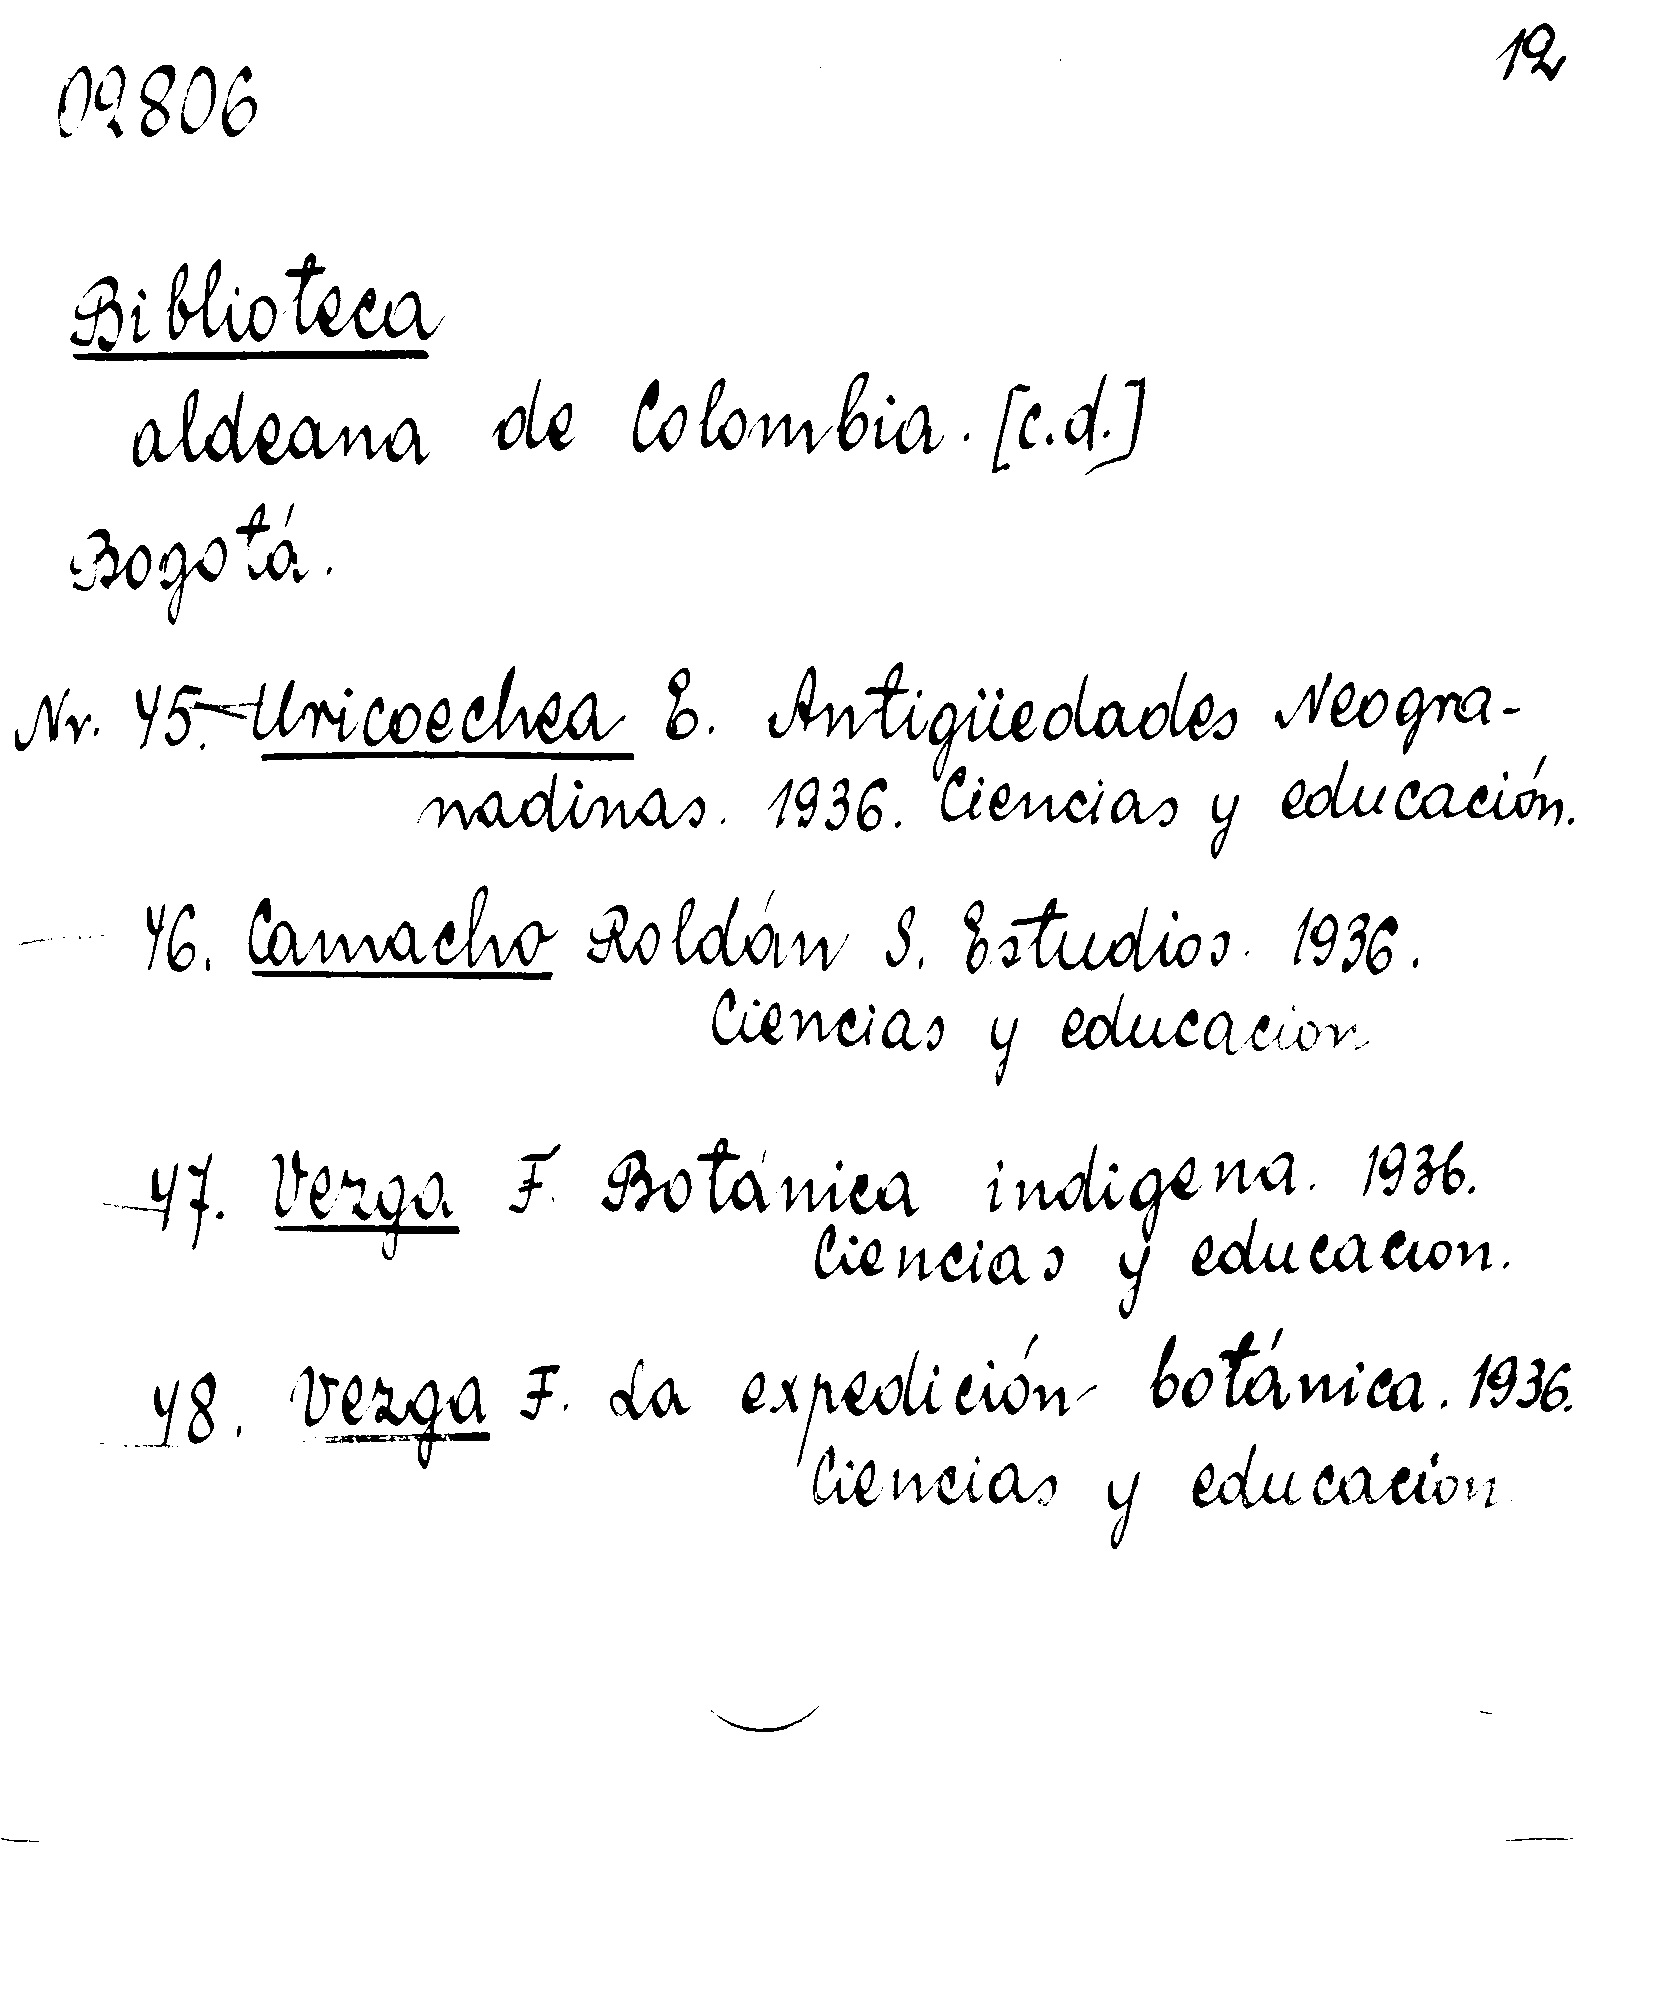 12
02806
Biblioteca
aldeana de Colombia. [c.d.]
Bogotá.
Nr. 45. Uricoechea E. Antigüedades Neogra-
nadinas. 1936. Ciencias y educación.
46. Camacho Roldán S. Estudios. 1936.
Ciencias y educacion
47. Vezga F. Botánica indigena. 1936.
Ciencias y educacion.
48. Vezga F. La expedición botánica. 1936.
Ciencias y educacion